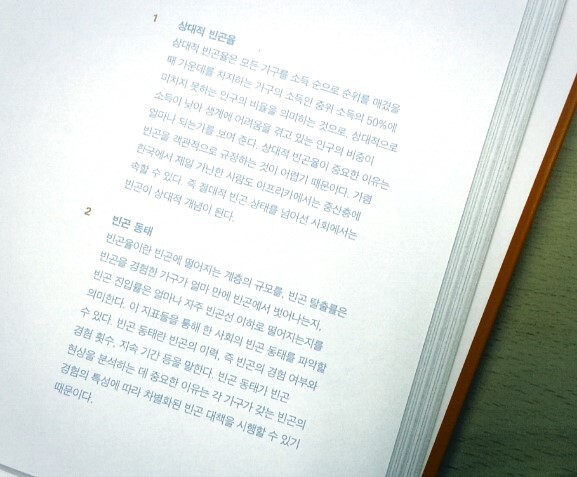 1 상대적 빈곤율
상대적 빈곤율은 모든 가구를 소득 순으로 순위를 매겼을
때 가운데를 차지하는 가구의 소득인 중위 소득의 50%에
미치지 못하는 인구의 비율을 의미하는 것으로, 상대적으로
소득이 낮아 생계에 어려움을 겪고 있는 인구의 비중이
얼마나 되는가를 보여 준다. 상대적 빈곤율이 중요한 이유는
빈곤을 객관적으로 규정하는 것이 어렵기 때문이다. 가령
한국에서 제일 가난한 사람도 아프리카에서는 중산층에
속할 수 있다. 즉 절대적 빈곤 상태를 넘어선 사회에서는
빈곤이 상대적 개념이 된다.
2 빈곤 동태
빈곤율이란 빈곤에 떨어지는 계층의 규모를, 빈곤 탈출률은
빈곤을 경험한 가구가 얼마 만에 빈곤에서 벗어나는지,
빈곤 진입률은 얼마나 자주 빈곤선 이하로 떨어지는지를
의미한다. 이 지표들을 통해 한 사회의 빈곤 동태를 파악할
수 있다. 빈곤 동태란 빈곤의 이력, 즉 빈곤의 경험 여부와
경험 횟수, 지속 기간 등을 말한다. 빈곤 동태가 빈곤
현상을 분석하는 데 중요한 이유는 각 가구가 갖는 빈곤의
경험의 특성에 따라 차별화된 빈곤 대책을 시행할 수 있기
때문이다.